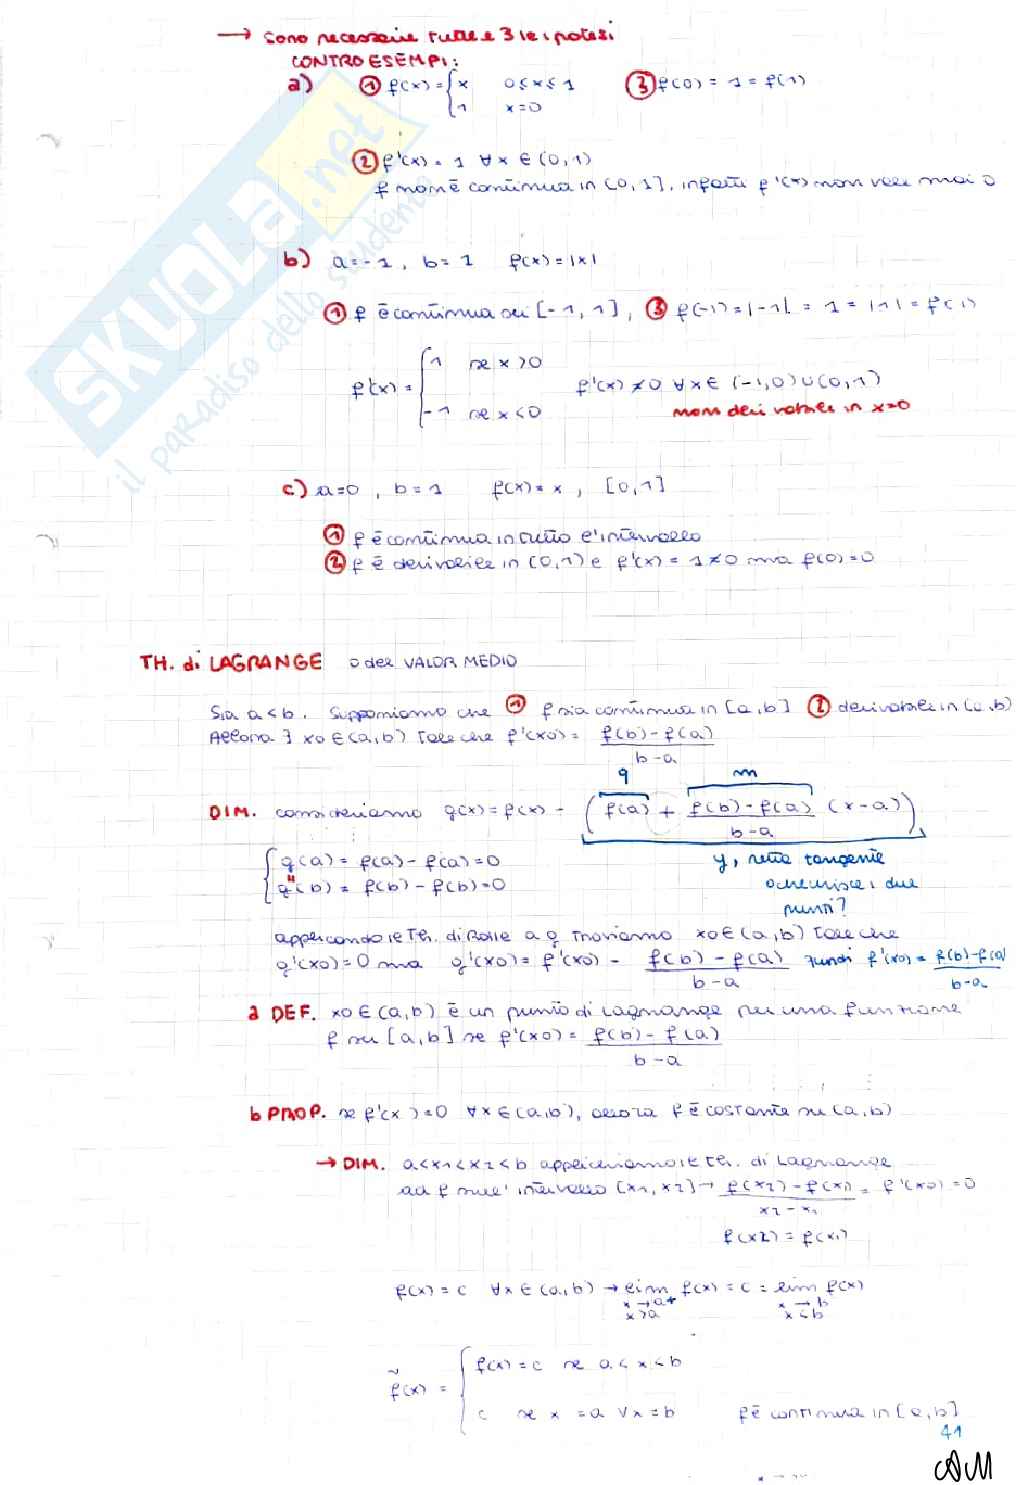 → sono necessarie tutte e 3 le ipotesi
CONTROESEMPI:
a) ① f(x) = { x 0≤x≤1 ③ f(0) = 1 = f(1)
1 x=0
② f'(x) = 1 ∀x ∈ (0,1)
f non è continua in [0,1], infatti f'(x) non vale mai 0
b) a=-1, b=1 f(x)=|x|
① f è continua su [-1,1], ③ f(-1)=|-1| = 1 = |1| = f(1)
f'(x) = { 1 se x>0
f'(x) ≠0 ∀x∈ (-1,0)∪(0,1)
-1 se x<0 non derivabile in x=0
c) a=0, b=1 f(x)=x, [0,1]
① f è continua in tutto l'intervallo
② f è derivabile in (0,1) e f'(x) = 1≠0 ma f(0)=0
TH. di LAGRANGE o del VALOR MEDIO
Sia a<b. Supponiamo che ① f sia continua in [a,b] ② derivabile in (a,b)
Allora ∃ x0∈(a,b) tale che f'(x0) = f(b)-f(a)
b-a
q m
DIM. consideriamo g(x)=f(x) - (f(a) + f(b)-f(a) (x-a))
b-a
{ g(a) = f(a) - f(a)=0 y, retta tangente
g(b) = f(b) - f(b)=0
punti?
applicando il Th. di Rolle a g troviamo x0∈(a,b) tale che
g'(x0)=0 ma g'(x0) = f'(x0) - f(b)-f(a) quindi f'(x0) = f(b)-f(a)
b-a b-a
a DEF. x0∈(a,b) è un punto di Lagrange per una funzione
f su [a,b] se f'(x0) = f(b)-f(a)
b-a
b PROP. se f'(x)=0 ∀x∈(a,b), allora f è costante su (a,b)
→ DIM. a<x1<x2<b applichiamo il th. di Lagrange
ad f sull'intervallo [x1,x2] → f(x2)-f(x1) = f'(x0)=0
x2-x1
f(x2) = f(x1)
f(x)=c ∀x∈(a,b) → lim f(x) = c = lim f(x)
x→a+ x→b
x>a x<b
f̃(x) = { f(x)=c se a<x<b
c se x=a ∨ x=b f è continua in [a,b]
41
AM
SKUOLA.net
il paradiso dello studente